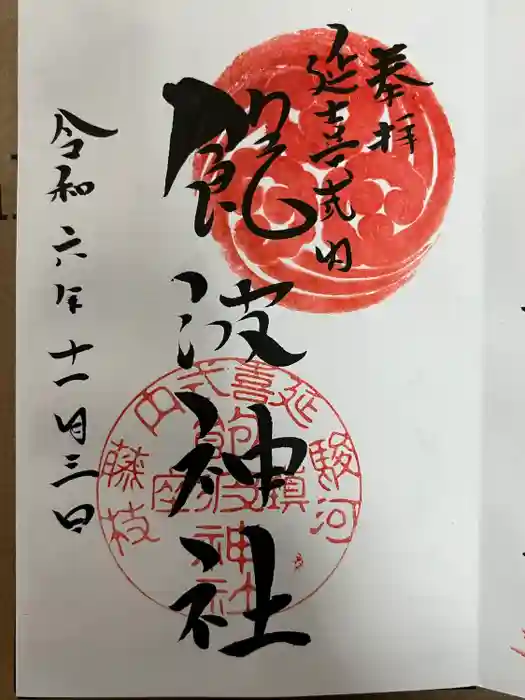 奉拝
延喜式内
飽波神社
令和六年十一月三日
駿河
延喜式内
藤枝
鎮座
飽波神社